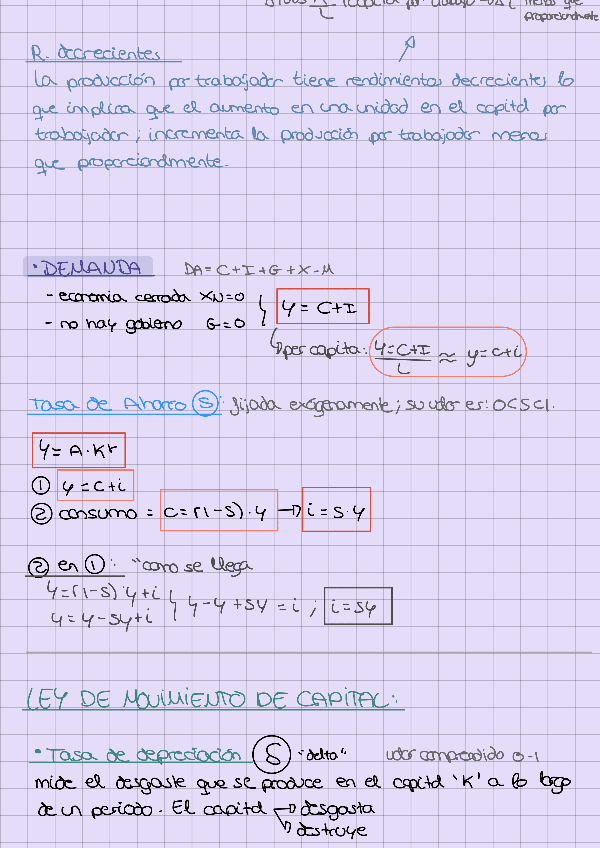 menos que
proporcionalmente
R. decrecientes
La producción por trabajador tiene rendimientos decrecientes, lo
que implica que el aumento en una unidad en el capital por
trabajador; incrementa la producción por trabajador menos
que proporcionalmente.
· DEMANDA DA = C + I + G + X - M
- economía cerrada XN=0
- no hay gobierno G=0
Y = C + I
per capita: Y=C+I / L ≈ y = c+i
Tasa de Ahorro (S): fijada exógenamente; su valor es: 0<S<1.
y = A·Kr
① y = c+i
② consumo = C=(1-S)·y → i = s·y
② en ①: "como se llega
y=(1-s)·y+i
y = y - sy+i
y - y + sy = i ; i = sy
LEY DE MOVIMIENTO DE CAPITAL:
· Tasa de depreciación δ "delta" valor comprendido 0-1
mide el desgaste que se produce en el capital 'K' a lo largo
de un periodo. El capital → desgasta
→ destruye